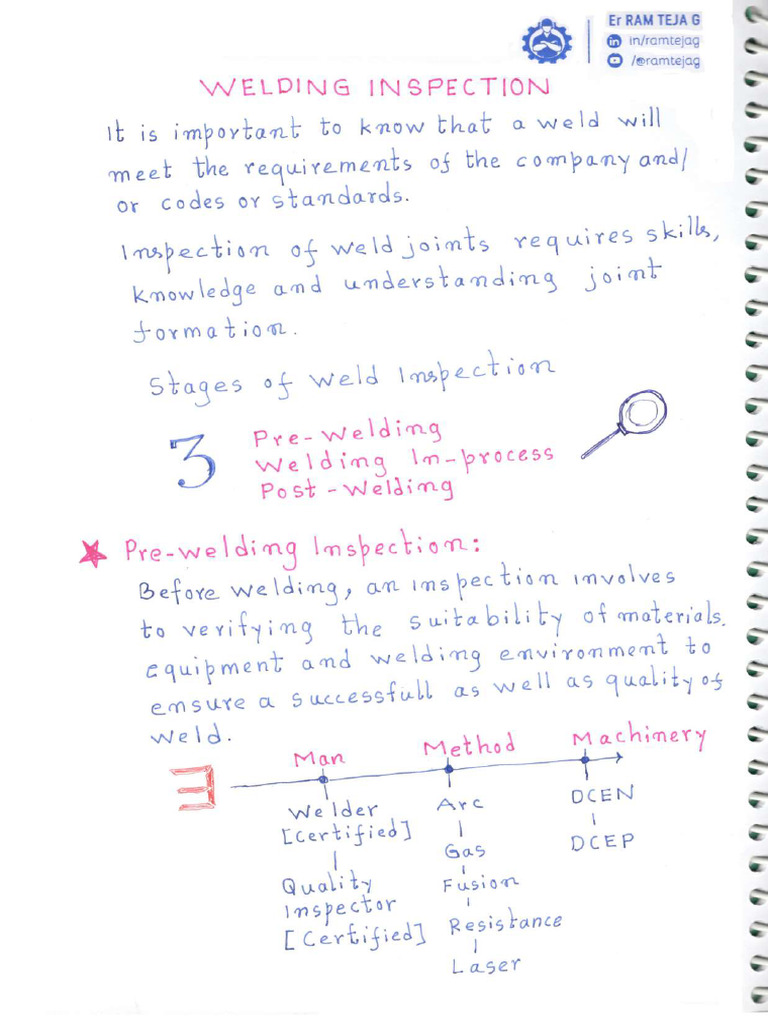 Er RAM TEJA G
in in/ramtejag
/@ramtejag
WELDING INSPECTION
It is important to know that a weld will
meet the requirements of the company and/
or codes or standards.
Inspection of weld joints requires skills,
knowledge and understanding joint
formation.
Stages of weld Inspection
3
Pre-Welding
Welding In-process
Post-Welding
Pre-welding Inspection:
Before welding, an inspection involves
to verifying the suitability of materials,
equipment and welding environment to
ensure a successfull as well as quality of
weld.
3 Man Method Machinery
Welder Arc DCEN
[Certified] Gas DCEP
Quality Fusion
Inspector Resistance
[Certified] Laser